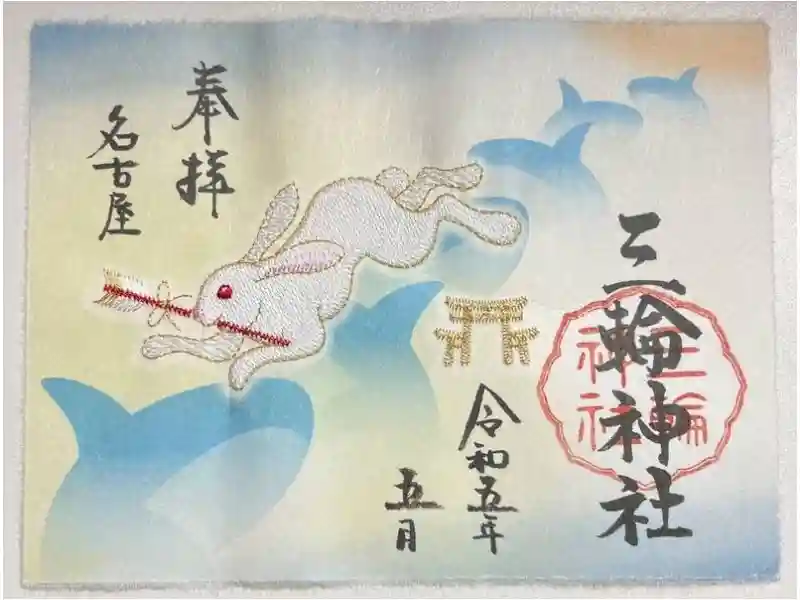 三輪神社
三輪
神社
奉拝
名古屋
令和五年
五月